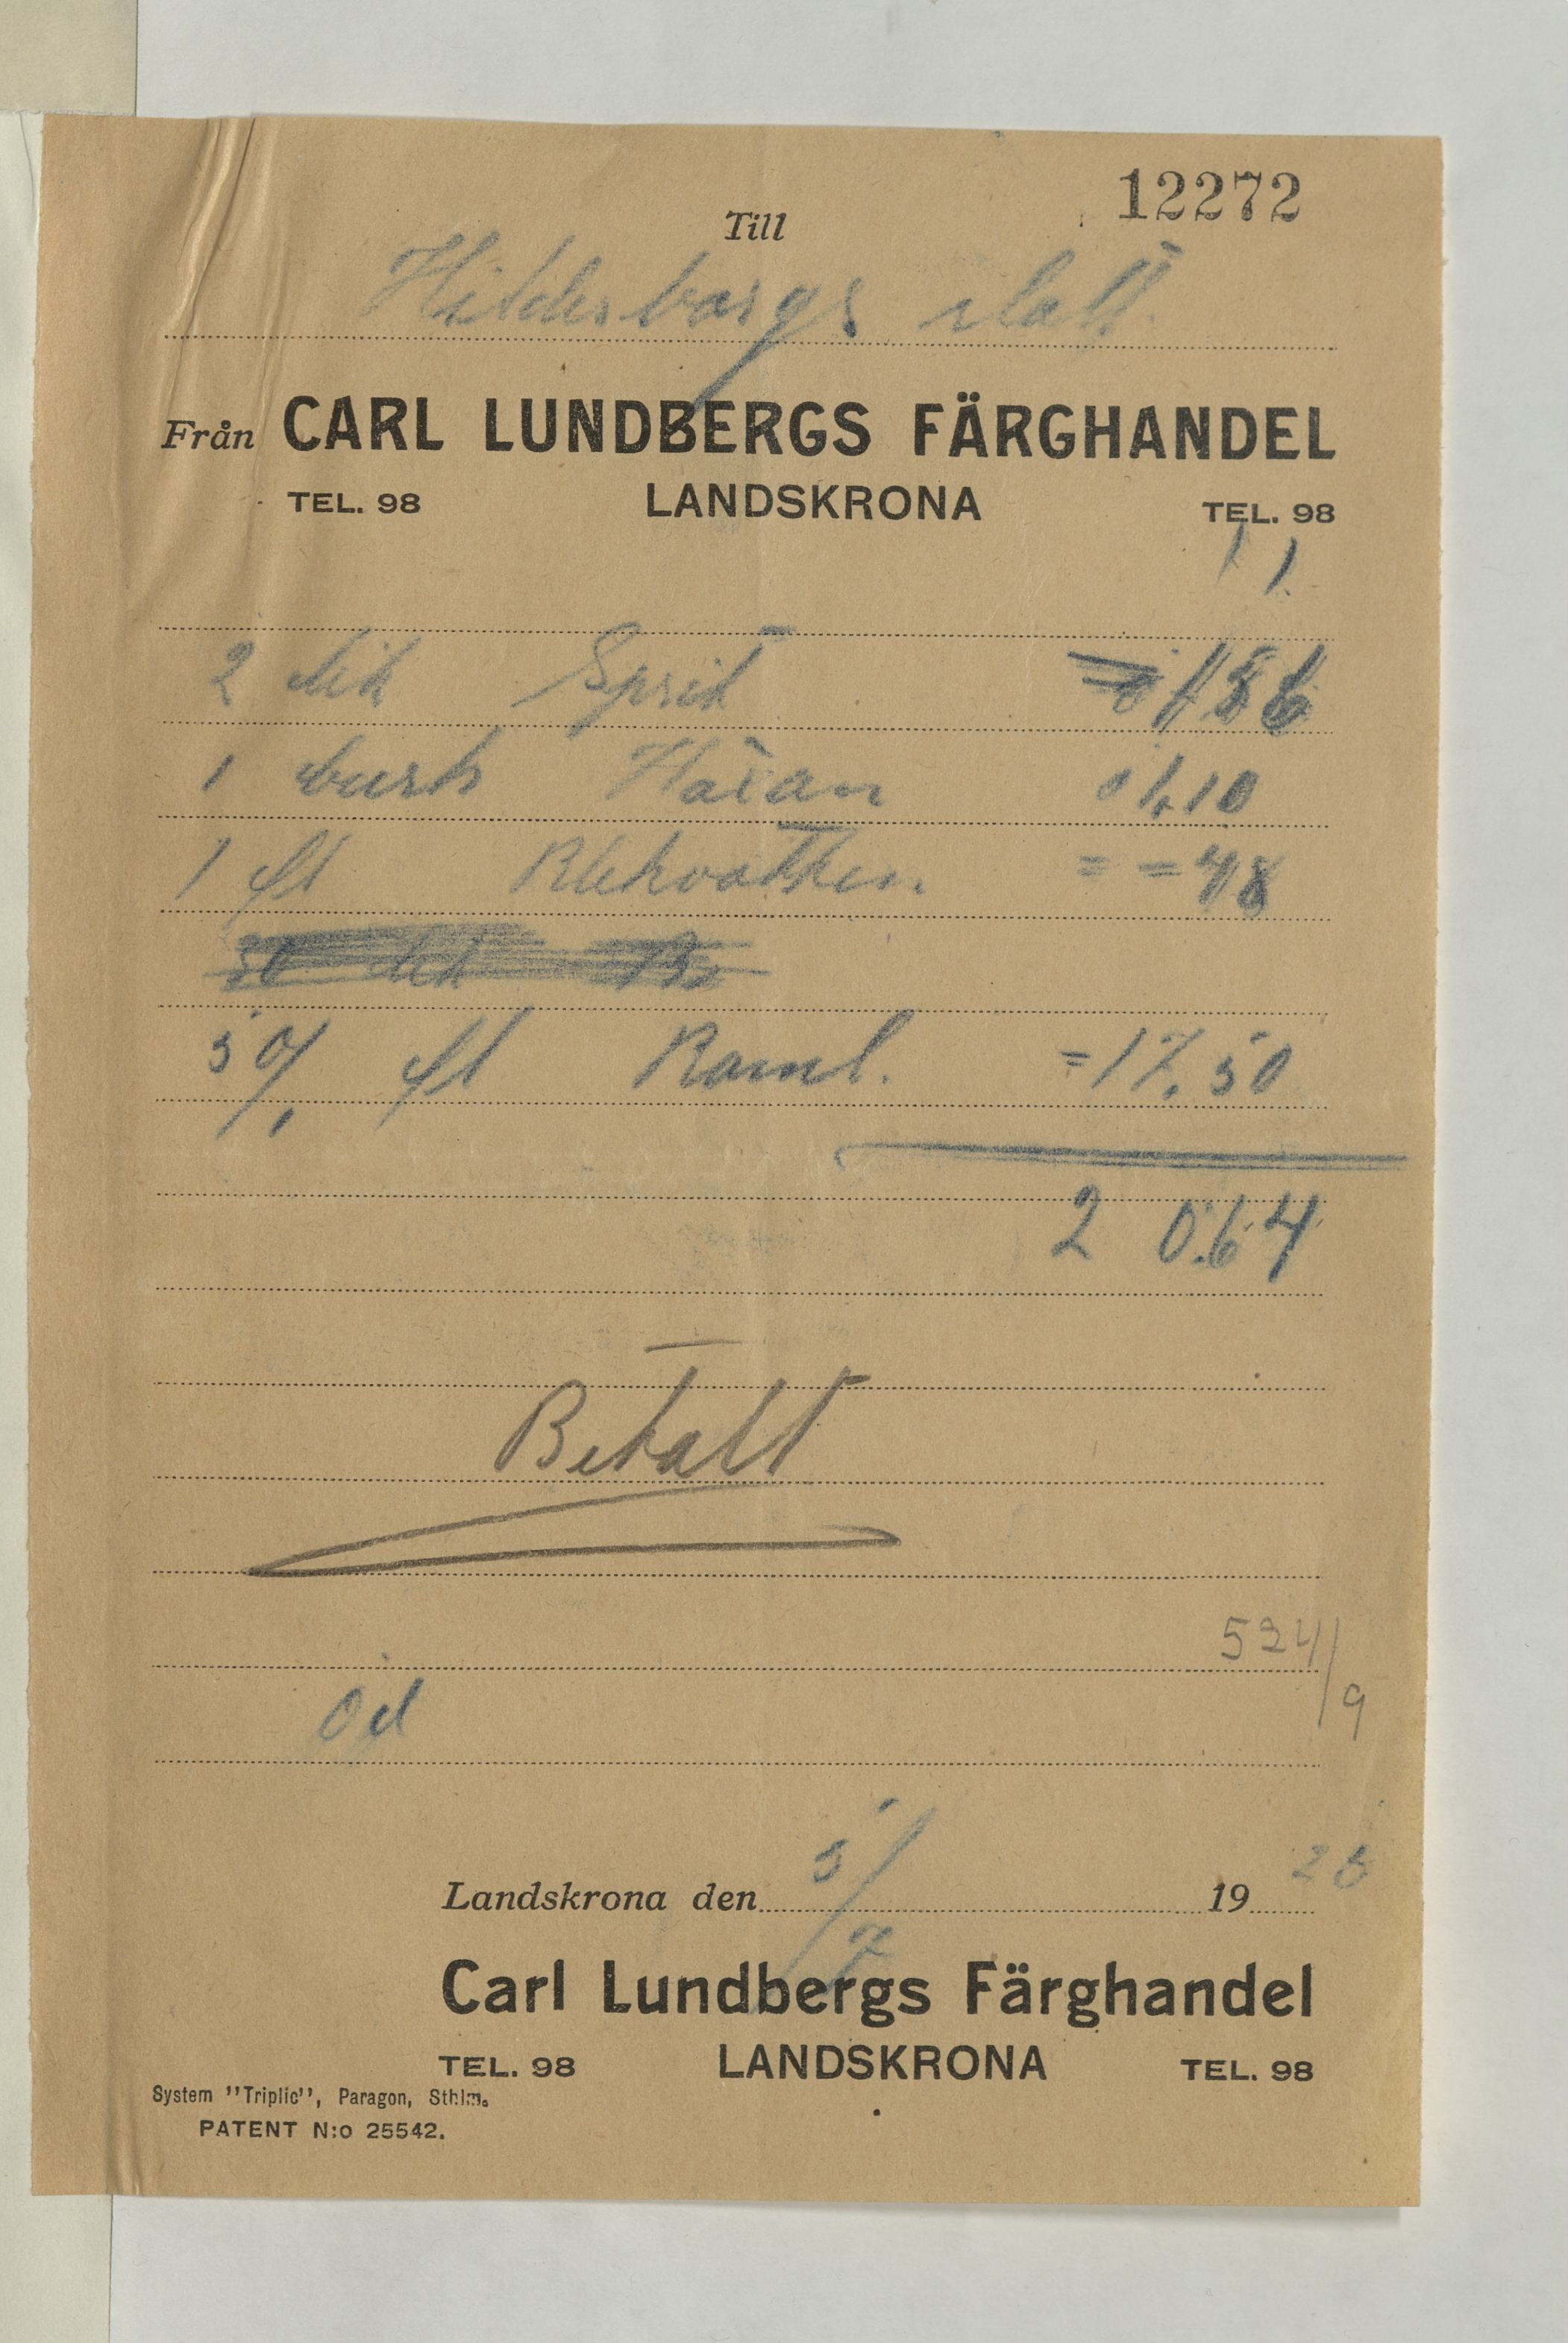 12272
Till
Hildesborgs slott
Från CARL LUNDBERGS FÄRGHANDEL
TEL. 98 LANDSKRONA TEL. 98
2 lit Sprit 1 56
1 burk Häxan 1.10
1 fl Blekvatten = = 48
50/1 fl Raml. = 17.50
20.64
Betalt
524/9
Landskrona den 5/7 19 26
Carl Lundbergs Färghandel
TEL. 98 LANDSKRONA TEL. 98
System "Triplic", Paragon, Sthlm.
PATENT N:o 25542.